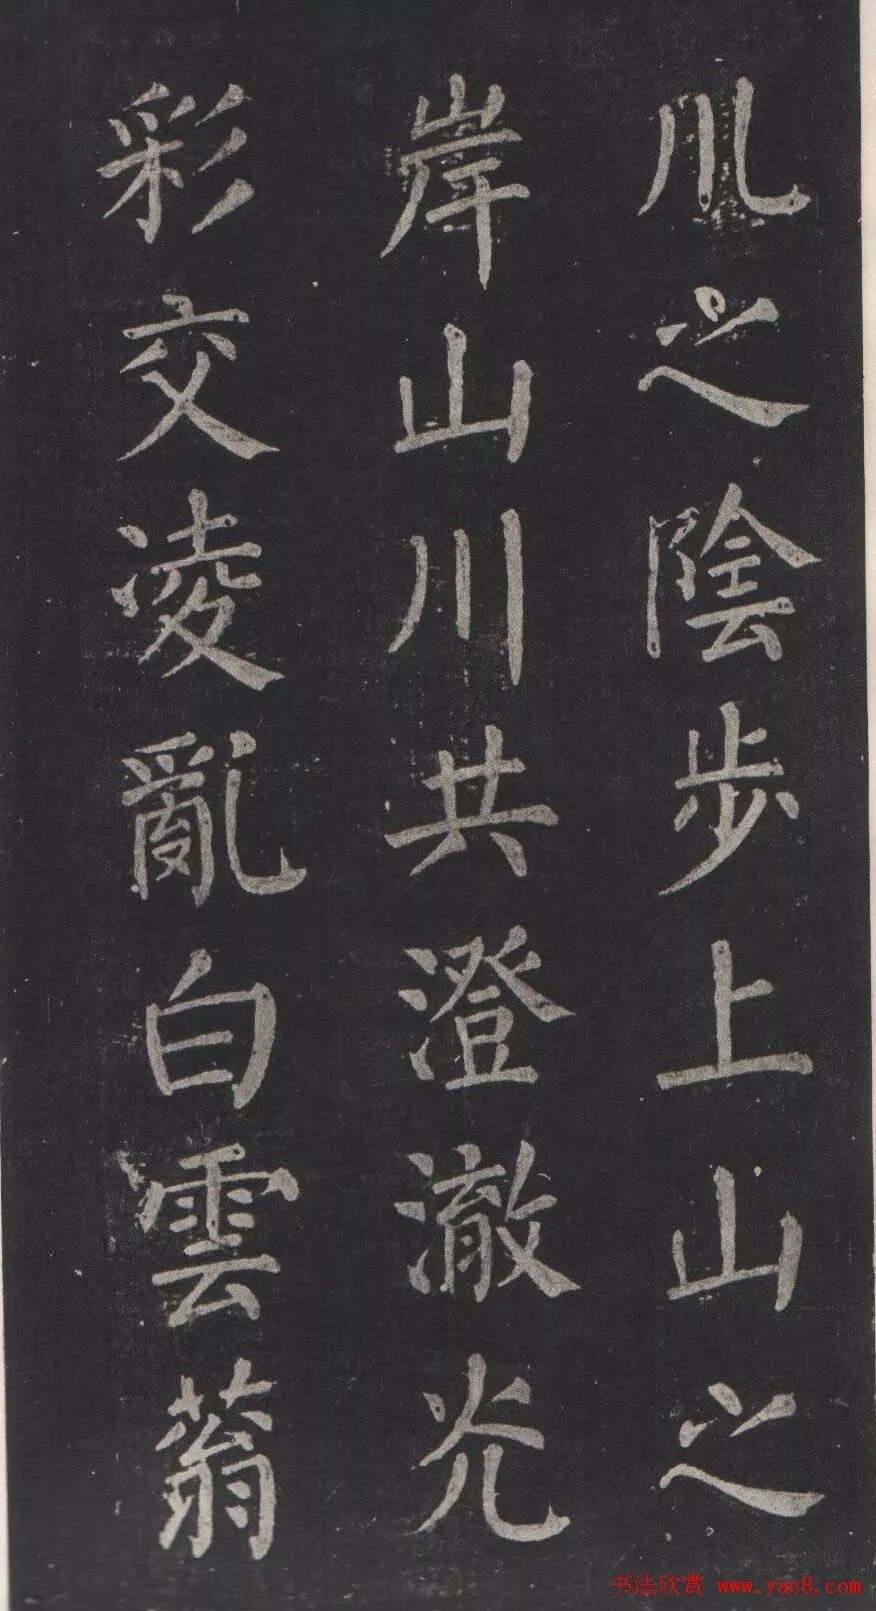 之陰步上山之
岸山川共澄澈光
彩交凌亂白雲蓊
书法欣赏 www.yac8.com